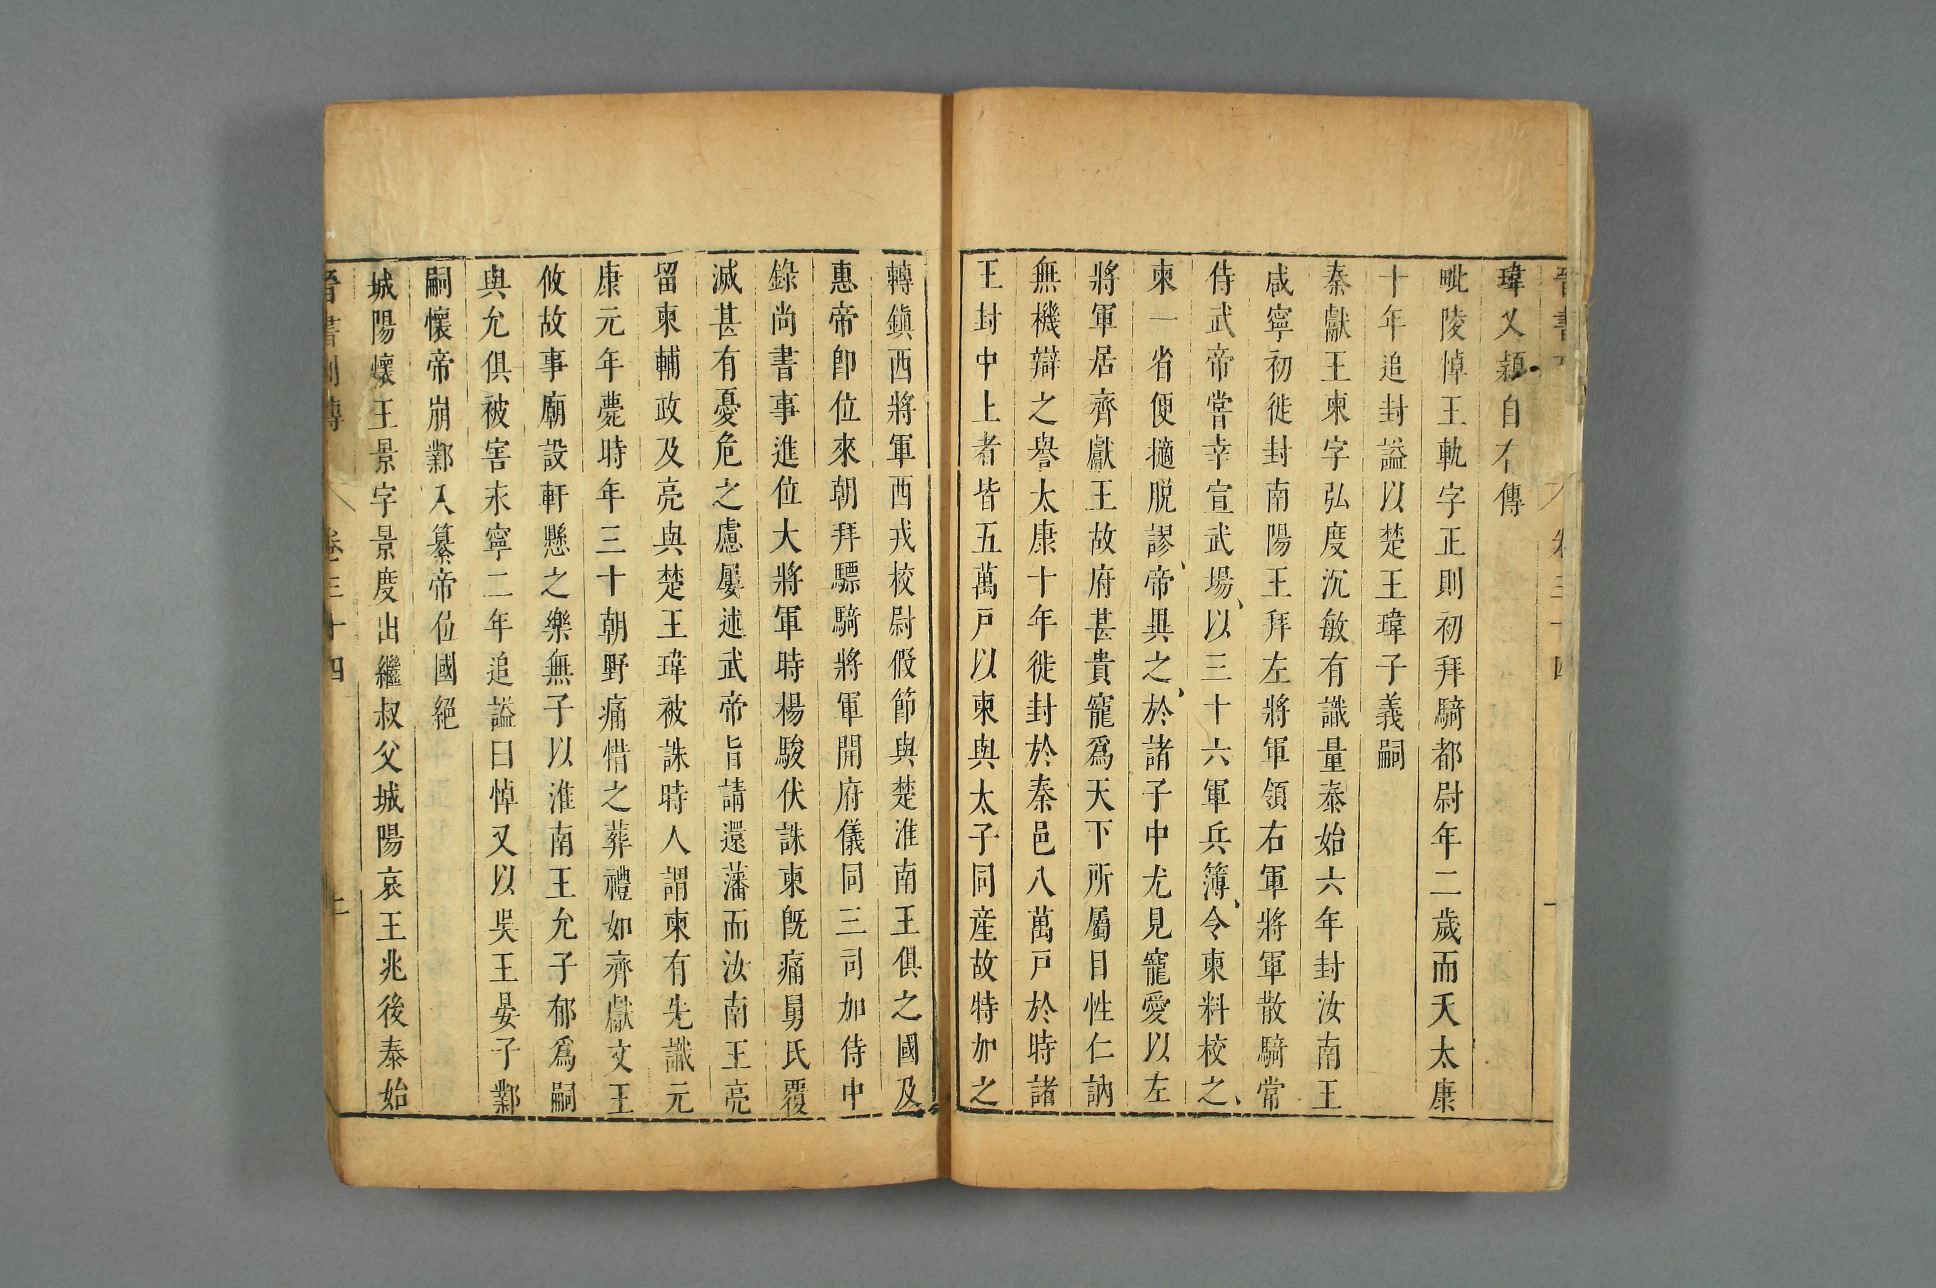 瑋乂穎自有傳
毗陵悼王軌字正則初拜騎都尉年二歲而夭太康
十年追封謚以楚王瑋子義嗣
秦獻王柬字弘度沉敏有識量泰始六年封汝南王
咸寧初徙封南陽王拜左將軍領右軍將軍散騎常
侍武帝嘗幸宣武場、以三十六軍兵簿、令柬料校之、
柬一省便擿脫謬、帝異之、於諸子中尤見寵愛以左
將軍居齊獻王故府甚貴寵爲天下所屬目性仁訥
無機辯之譽太康十年徙封於秦邑八萬戸於時諸
王封中土者皆五萬戸以柬與太子同産故特加之
轉鎭西將軍西戎校尉假節與楚淮南王俱之國及
惠帝卽位來朝拜驃騎將軍開府儀同三司加侍中
錄尚書事進位大將軍時楊駿伏誅柬旣痛舅氏覆
滅甚有憂危之慮屢述武帝旨請還藩而汝南王亮
留柬輔政及亮與楚王瑋被誅時人謂柬有先識元
康元年薨時年三十朝野痛惜之葬禮如齊獻文王
攸故事廟設軒懸之樂無子以淮南王允子郁爲嗣
與允俱被害永寧二年追謚曰悼又以吳王晏子鄴
嗣懷帝崩鄴入纂帝位國絕
城陽懷王景字景度出繼叔父城陽哀王兆後泰始
晉書列傳 卷三十四